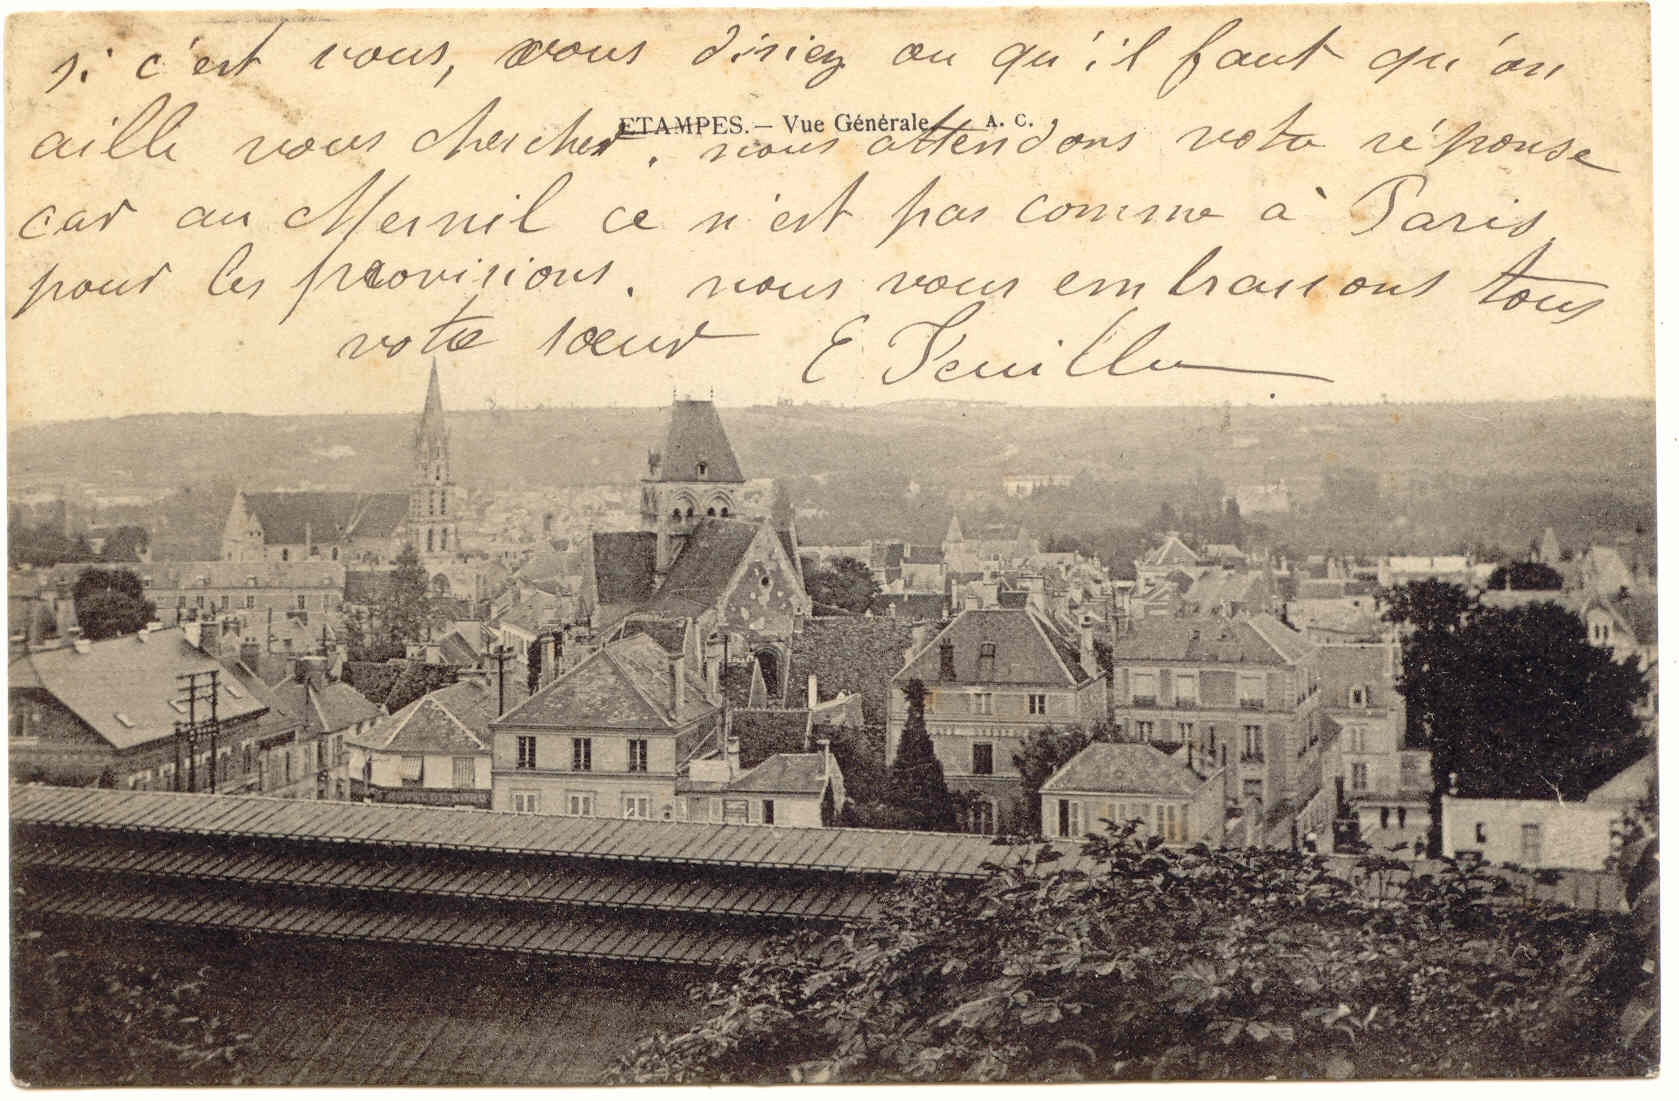 si c'est vous, vous diriez ou qu'il faut qu'on
aille vous chercher. nous attendons vote réponse
ETAMPES. — Vue Générale A. C.
car au Mesnil ce n'est pas comme à Paris
pour les provisions. nous vous embrassons tous
vote sœur E